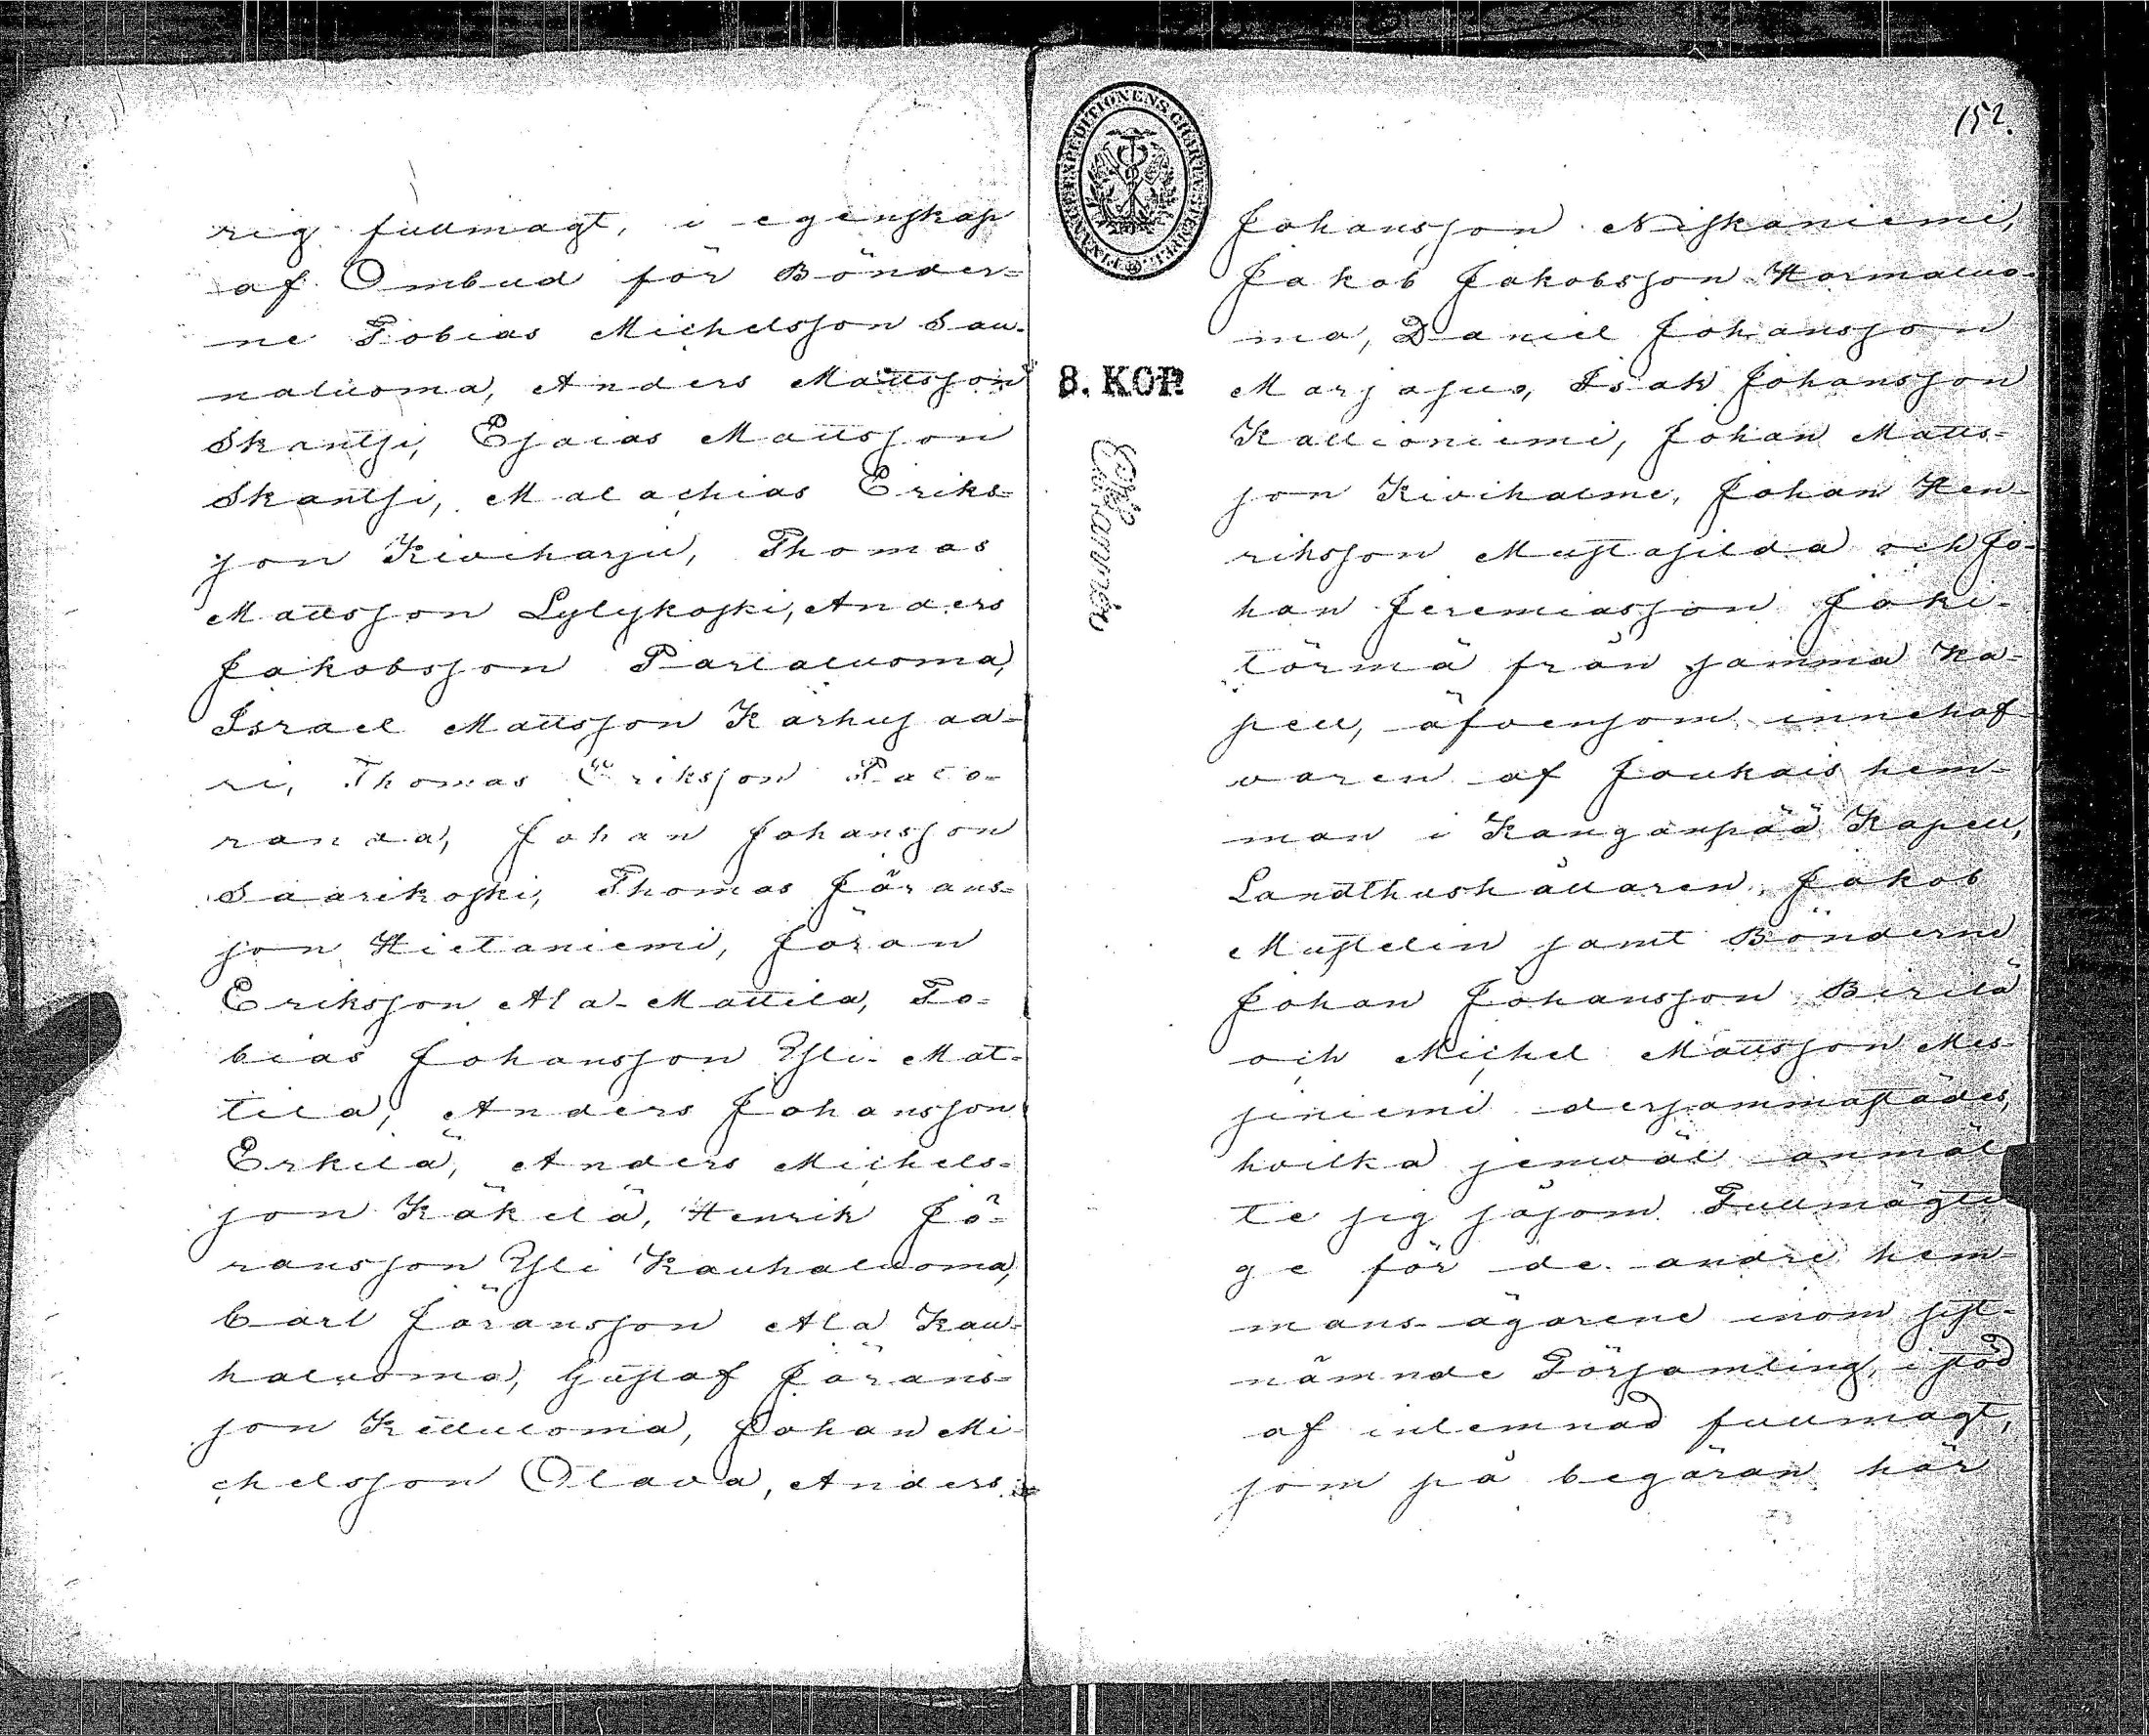 rig fullmagt, i egenskap
af Ombud för Bönder=
ne Tobias Michelsson Sau-
naluoma, Anders Mattsson
Skantsi, Esaias Mattsson
Skantsi, Malachias Eriks=
son Kiviharju, Thomas
Mattsson Lylykoski, Anders
Jakobsson Partaluoma,
Israel Mattsson Karhusaa=
ri, Thomas Eriksson Palo-
randa, Johan Johansson
Saarikoski, Thomas Jörans=
son Hietaniemi, Jöran
Eriksson Ala-Mattila, To=
bias Johansson Yli-Mat=
tila, Anders Johansson
Erkilä, Anders Michels=
son Käkelä, Henrik Jö=
ransson Yli Kauhaluoma,
Carl Jöransson Ala Kau=
haluoma, Gustaf Jörans=
son Killuoma, Johan Mi
chelsson Olava, Anders
FINANCE EXPEDITIONENS CHARTÆ STEMPEL
8. KOP.
Ekstamnér
152.
Johansson Niskaniemi,
Jakob Jakobsson Harmaluo-
ma, Daniel Johansson
Marjasuo, Isak Johansson
Kallioniemi, Johan Matts=
son Kivihalme, Johan Hen-
riksson Mustasilda och Jo-
han Jeremiasson Joki-
törmä från samma Ka=
pell, äfvensom innehaf
varen af Joukais hem=
man i Kanganpää Kapell,
Landthushållaren Jakob
Mustelin samt Bönderne
Johan Johansson Birilä
och Michel Mattsson Mes-
siniemi dersammastädes,
hvilka jemväl anmäl
te sig såsom Fullmägti
ge för de andre hem-
mans-ägarene inom sist-
nämnde Församling, i stöd
af inlemnad fullmagt,
som på begäran här